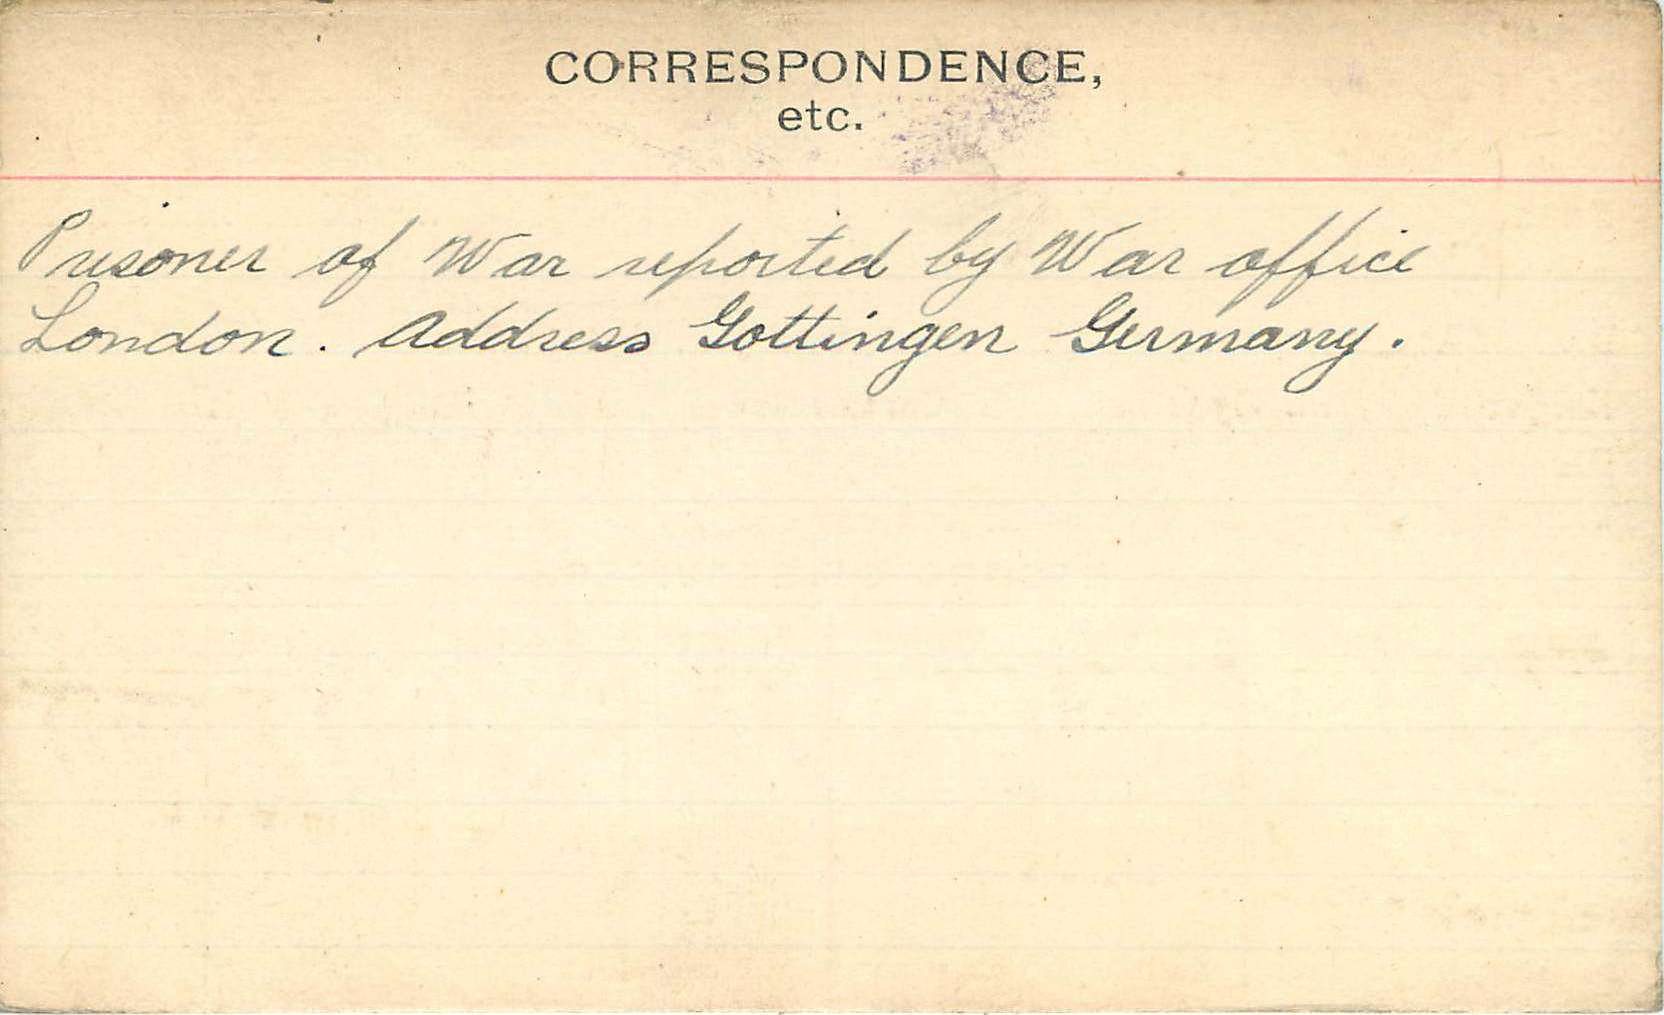 CORRESPONDENCE,
etc.
Prisoner of War reported by War office
London. Address Gottingen Germany.